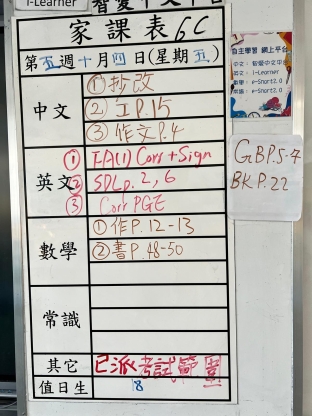 i-Learner 智愛中文平台
家課表 6C
第五週十月四日(星期五)
中文
①抄改
②工P.15
③作文P.4
英文
① FA(1) Corr + Sign
② SDLp. 2, 6
③ Corr PGE
數學
①作P. 12-13
②書P.48-50
常識
其它 已派考試範圍
值日生 8
自主學習 網上平台
中文: 智愛中文平台
英文: i-Learner
數學: e-Smart2.0
常識: e-Smart2.0
GBP.5-7
BKP.22